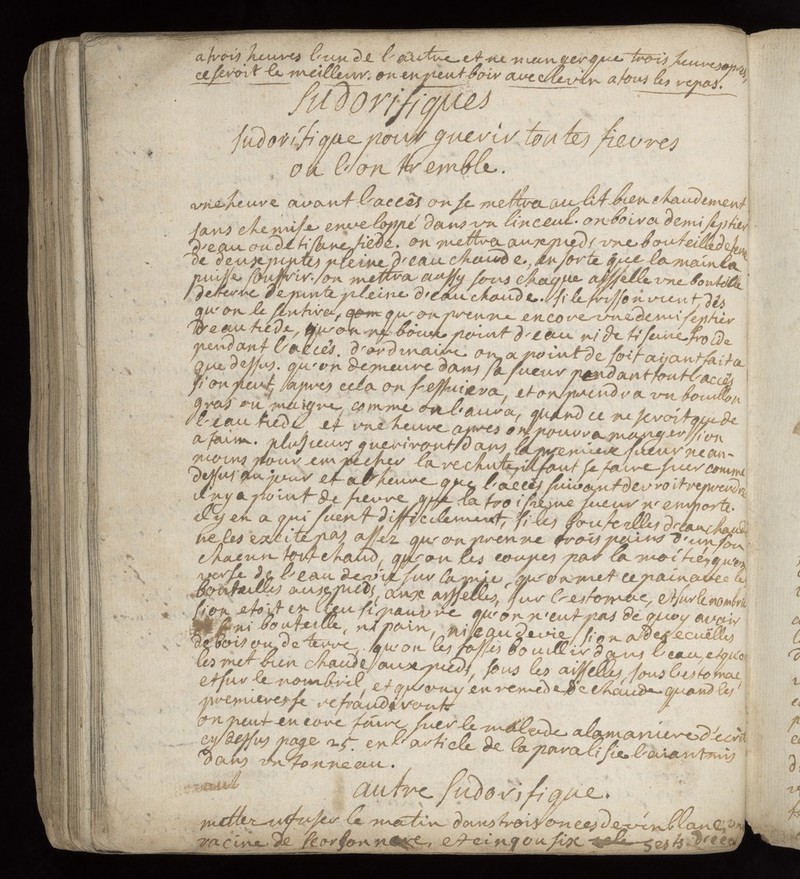 a trois heures l'un de l'autre et ne manger que trois heures apres,
ce seroit le meilleur. on en peut boir avec le vin a tous les repas.
Sudorifiques
Sudorifique pour guerir toutes fievres
ou l'on tremble.
une heure avant l'accès on se mettra au lit bien chaudement
sans chemise enveloppé dans un linceul. on boira demi septier
d'eau ou de tisane tiede. on mettra aux pieds une bouteille de terre
de deux pintes pleine d'eau chaude, en sorte que la main la
puisse souffrir. on mettra aussy sous chaque aisselle une bouteille
de terre de pinte pleine d'eau chaude. si le frisson vient, dès
qu'on le sentira, qu'on prenne encore une demi septier
d'eau tiede, qu'on ne boive point d'eau ni de tisane froide
pendant l'accès. d'ordinaire on a point de soif aiant fait a
que dessus. qu'on demeure dans sa sueur pendant tout l'accès
si on peut, apres cela on s'essuiera, et on prendra un bouillon
gras ou maigre, comme on l'aura, quand ce ne seroit que de
l'eau tiede et une heure apres on pourra manger si on
a faim. plusieurs gueriront dans la premiere sueur nean-
moins pour empecher la rechute, il faut se faire suer comme
dessus un jour et a l'heure que l'accès suivant devroit reprendre
il n'y a point de fievre que la troisieme sueur n'emporte.
il y en a qui suent difficilement, si les bouteilles d'eau chaude
ne les excite pas assez qu'on prenne trois pains d'un sou
chacun tout chaud, qu'on les coupes par la moitié, qu'on
verse de l'eau de vie sur la mie, qu'on met ce pain avec les
bouteilles aux pieds, aux aisselles, sur l'estomac, et sur le nombril
si on etoit en lieu si pauvre qu'on n'eut pas de quoy avoir
ni bouteille, ni pain, ni eau de vie, si on a des ecuëlles
de bois ou de terre, qu'on les fasses bouillir dans l'eau, et qu'on
les met bien chaude aux pieds, sous les aisselles, sous l'estomac
et sur le nombril, et qu'on y en remede de chaude quand les
premieres se refraudiront
on peut encore faire suer le malade a la maniere d'ecrit
cy dessus page 25. en l'article de la paralisie l'aiant mis
dans un tonneau.
autre Sudorifique.
mettez infuser le matin dans trois onces de vin blanc, une
racine de scorsonnere, et cinq ou six